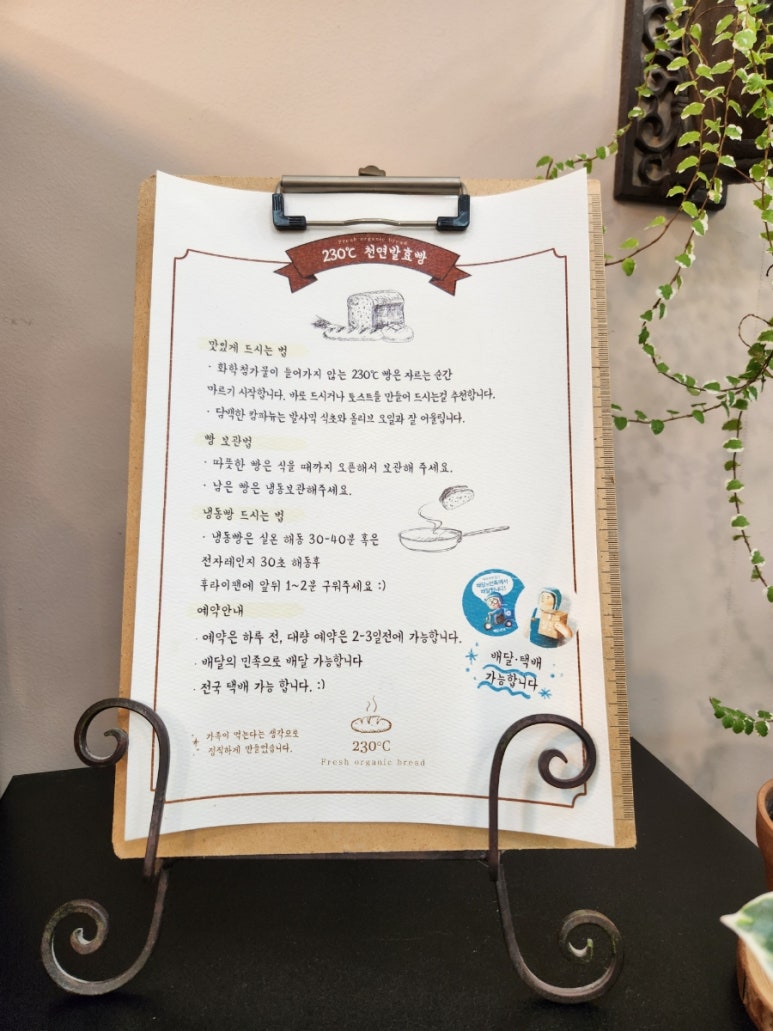 Fresh organic bread
230℃ 천연발효빵
맛있게 드시는 법
· 화학첨가물이 들어가지 않는 230℃ 빵은 자르는 순간
마르기 시작합니다. 바로 드시거나 토스트를 만들어 드시는걸 추천합니다.
· 담백한 캄파뉴는 발사믹 식초와 올리브 오일과 잘 어울립니다.
빵 보관법
· 따뜻한 빵은 식을 때까지 오픈해서 보관해 주세요.
· 남은 빵은 냉동보관해주세요.
냉동빵 드시는 법
· 냉동빵은 실온 해동 30-40분 혹은
전자레인지 30초 해동후
후라이팬에 앞뒤 1~2분 구워주세요 :)
예약안내
· 예약은 하루 전, 대량 예약은 2-3일전에 가능합니다.
· 배달의 민족으로 배달 가능합니다
· 전국 택배 가능 합니다. :)
배달·택배
가능합니다
가족이 먹는다는 생각으로
정직하게 만들었습니다.
230°C
Fresh organic bread